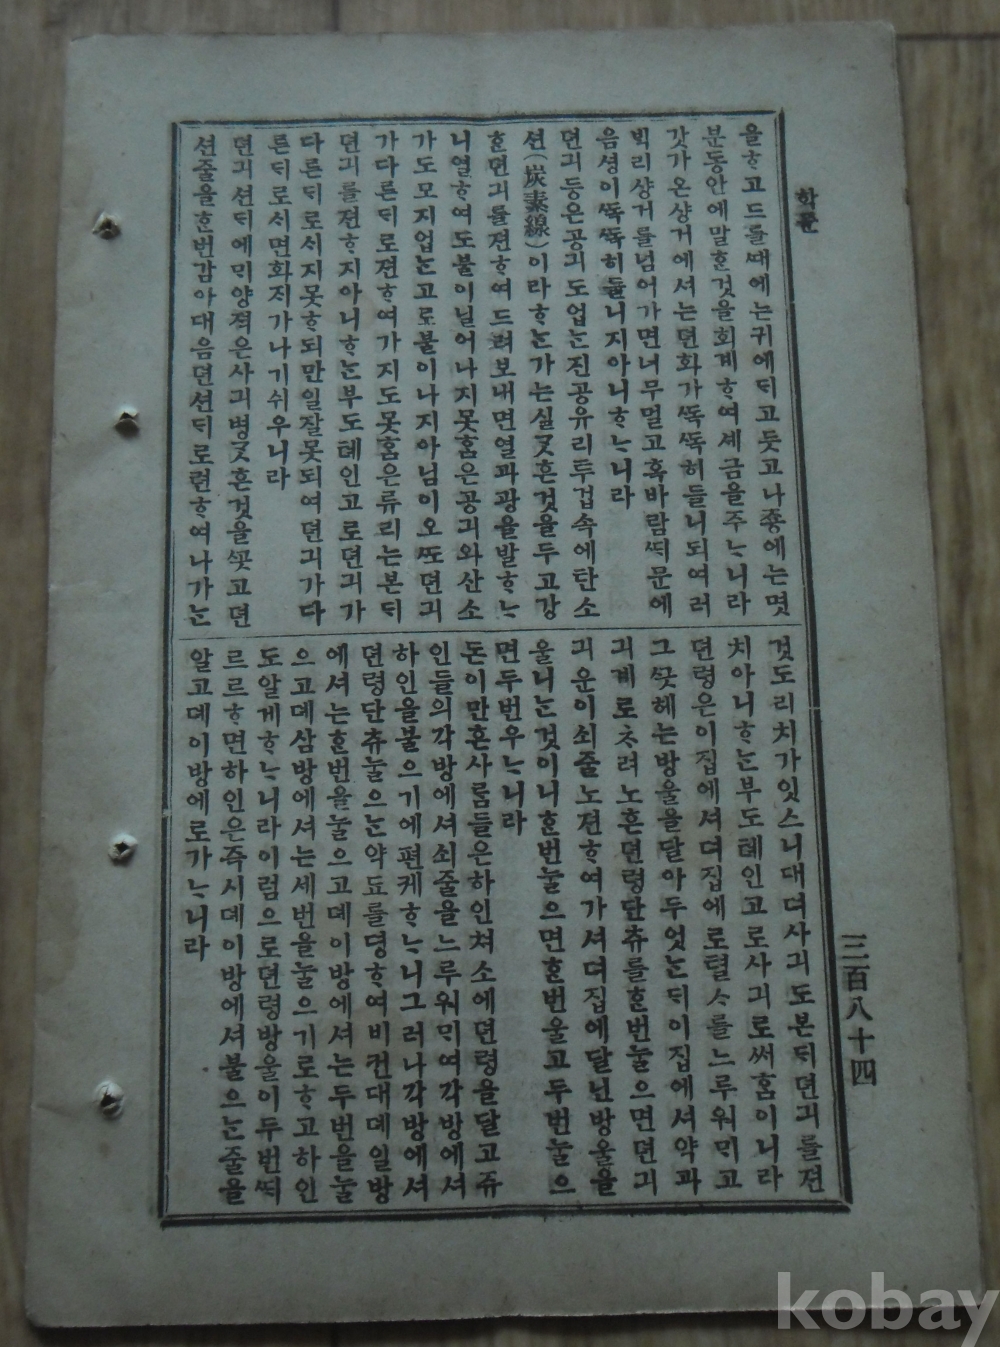 학문
을ᄒᆞ고드를ᄯᅢ에는귀에ᄃᆡ고듯고나죵에는몃
분동안에말ᄒᆞᆫ것을회계ᄒᆞ여셰금을주ᄂᆞ니라
갓가온샹거에셔는뎐화가ᄯᅩᆨᄯᅩᆨ히들니되여러
ᄇᆡᆨ리샹거를넘어가면너무멀고혹바람ᄯᅴ문에
음셩이ᄯᅩᆨᄯᅩᆨ히들니지아니ᄒᆞᄂᆞ니라
뎐긔등은공긔도업ᄂᆞᆫ진공유리투겁속에탄소
션(炭素線)이라ᄒᆞᄂᆞᆫ가는실ᄀᆞᆺ흔것을두고강
ᄒᆞᆫ뎐긔를젼ᄒᆞ여드려보내면열과광을발ᄒᆞᄂᆞ
니열ᄒᆞ여도불이닐어나지못홈은공긔와산소
가도모지업ᄂᆞᆫ고로불이나지아님이오ᄯᅩ뎐긔
가다른ᄃᆡ로젼ᄒᆞ여가지도못홈은류리는본ᄃᆡ
뎐긔를젼ᄒᆞ지아니ᄒᆞᄂᆞᆫ부도톄인고로뎐긔가
다른ᄃᆡ로서지못ᄒᆞ되만일잘못되여뎐긔가다
른ᄃᆡ로서면화ᄌᆡ가나기쉬우니라
뎐긔션ᄃᆡ에ᄆᆡ양젹은사긔병ᄀᆞᆺ흔것을ᄭᅩᆺ고뎐
션줄을ᄒᆞᆫ번감아대음뎐션ᄃᆡ로련ᄒᆞ여나가ᄂᆞᆫ
것도리치가잇스니대뎌사긔도본ᄃᆡ뎐긔를젼
치아니ᄒᆞᄂᆞᆫ부도톄인고로사긔로써홈이니라
뎐령은이집에셔뎌집에로텰ᄉᆞ를느루워ᄆᆡ고
그ᄭᅳᆺ헤는방울을달아두엇ᄂᆞᆫᄃᆡ이집에셔약과
긔계로ᄎᆞ려노흔뎐령단츄를ᄒᆞᆫ번눌으면뎐긔
긔운이쇠줄노젼ᄒᆞ여가셔뎌집에달닌방울을
울니ᄂᆞᆫ것이니ᄒᆞᆫ번눌으면ᄒᆞᆫ번울고두번눌으
면두번우ᄂᆞ니라
돈이만흔사ᄅᆞᆷ들은하인쳐소에뎐령을달고쥬
인들의각방에셔쇠줄을느루워ᄆᆡ여각방에셔
하인을불으기에편케ᄒᆞᄂᆞ니그러나각방에셔
뎐령단츄눌으ᄂᆞᆫ약됴를뎡ᄒᆞ여비컨대뎨일방
에셔는ᄒᆞᆫ번을눌으고뎨이방에셔는두번을눌
으고뎨삼방에셔는세번을눌으기로ᄒᆞ고하인
도알게ᄒᆞᄂᆞ니라이럼으로뎐령방울이두번ᄯᅴ
르르ᄒᆞ면하인은즉시뎨이방에셔불으ᄂᆞᆫ줄을
알고뎨이방에로가ᄂᆞ니라
三百八十四
kobay